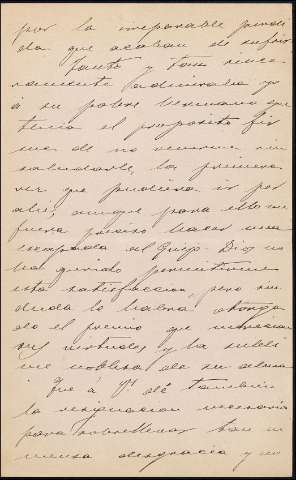 por la irreparable pérdi
da que acaban de sufrir
Tanto y tan since
ramente admiraba yo
á su pobre hermano que
tenia el propósito fir
me de no venirme sin
saludarle, la primera
vez que pudiera ir por
ahí, aunque para ello me
fuera preciso hacer una
escapada al Dios no
ha querido permitirme
esta satisfaccion, pero sin
duda le habrá otorga
do el premio que merecian
sus virtudes y la subli
me nobleza de su alma
¡Que á V. dé tambien
la resignacion necesaria
para sobrellevar tan in
mensa desgracia y